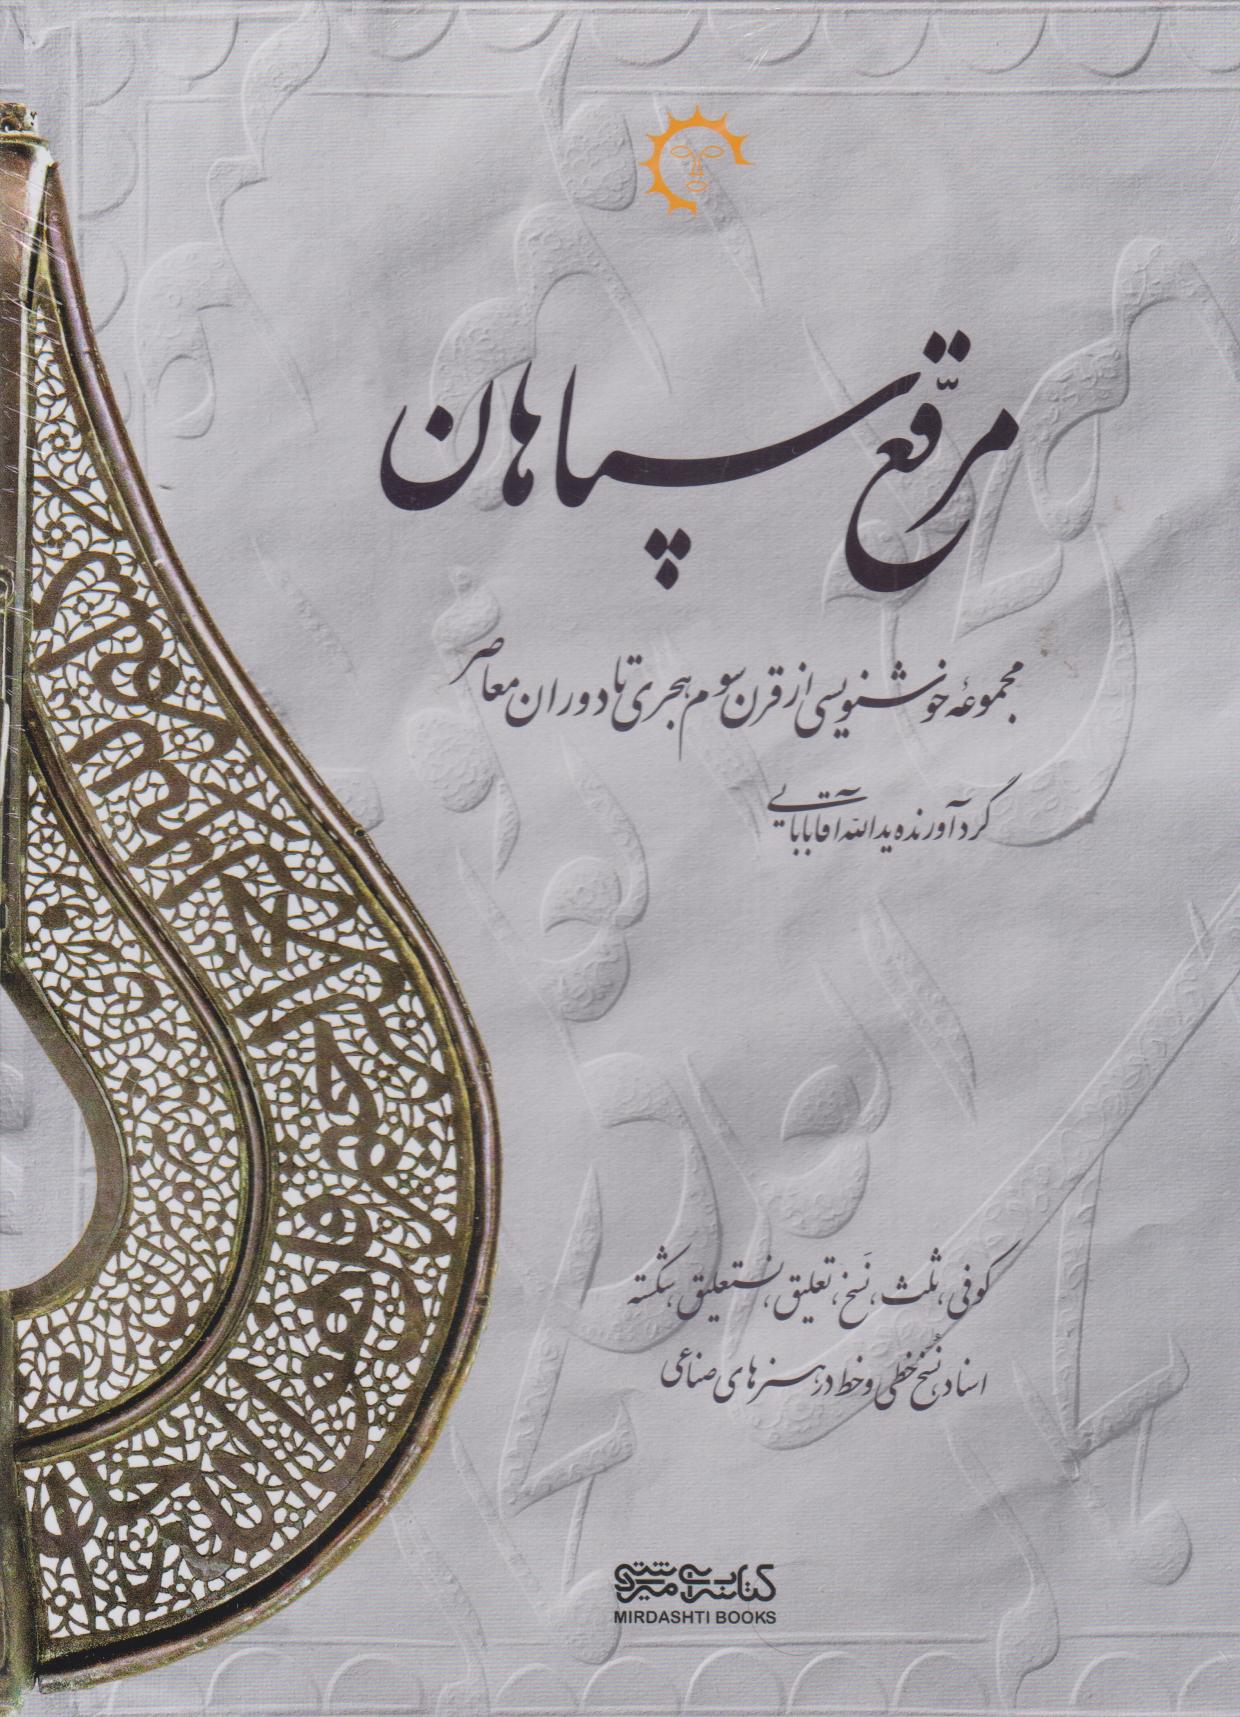 مرقّع سپاهان
مجموعهٔ خوشنویسی از قرن سوم هجری تا دوران معاصر
گردآورنده یدالله آقابابایی
کوفی، ثلث، نَسخ، تعلیق، نستعلیق، شکسته
اسناد، نُسَخ خطی و خط در هنرهای صناعی
کتابسرای میردشتی
MIRDASHTI BOOKS